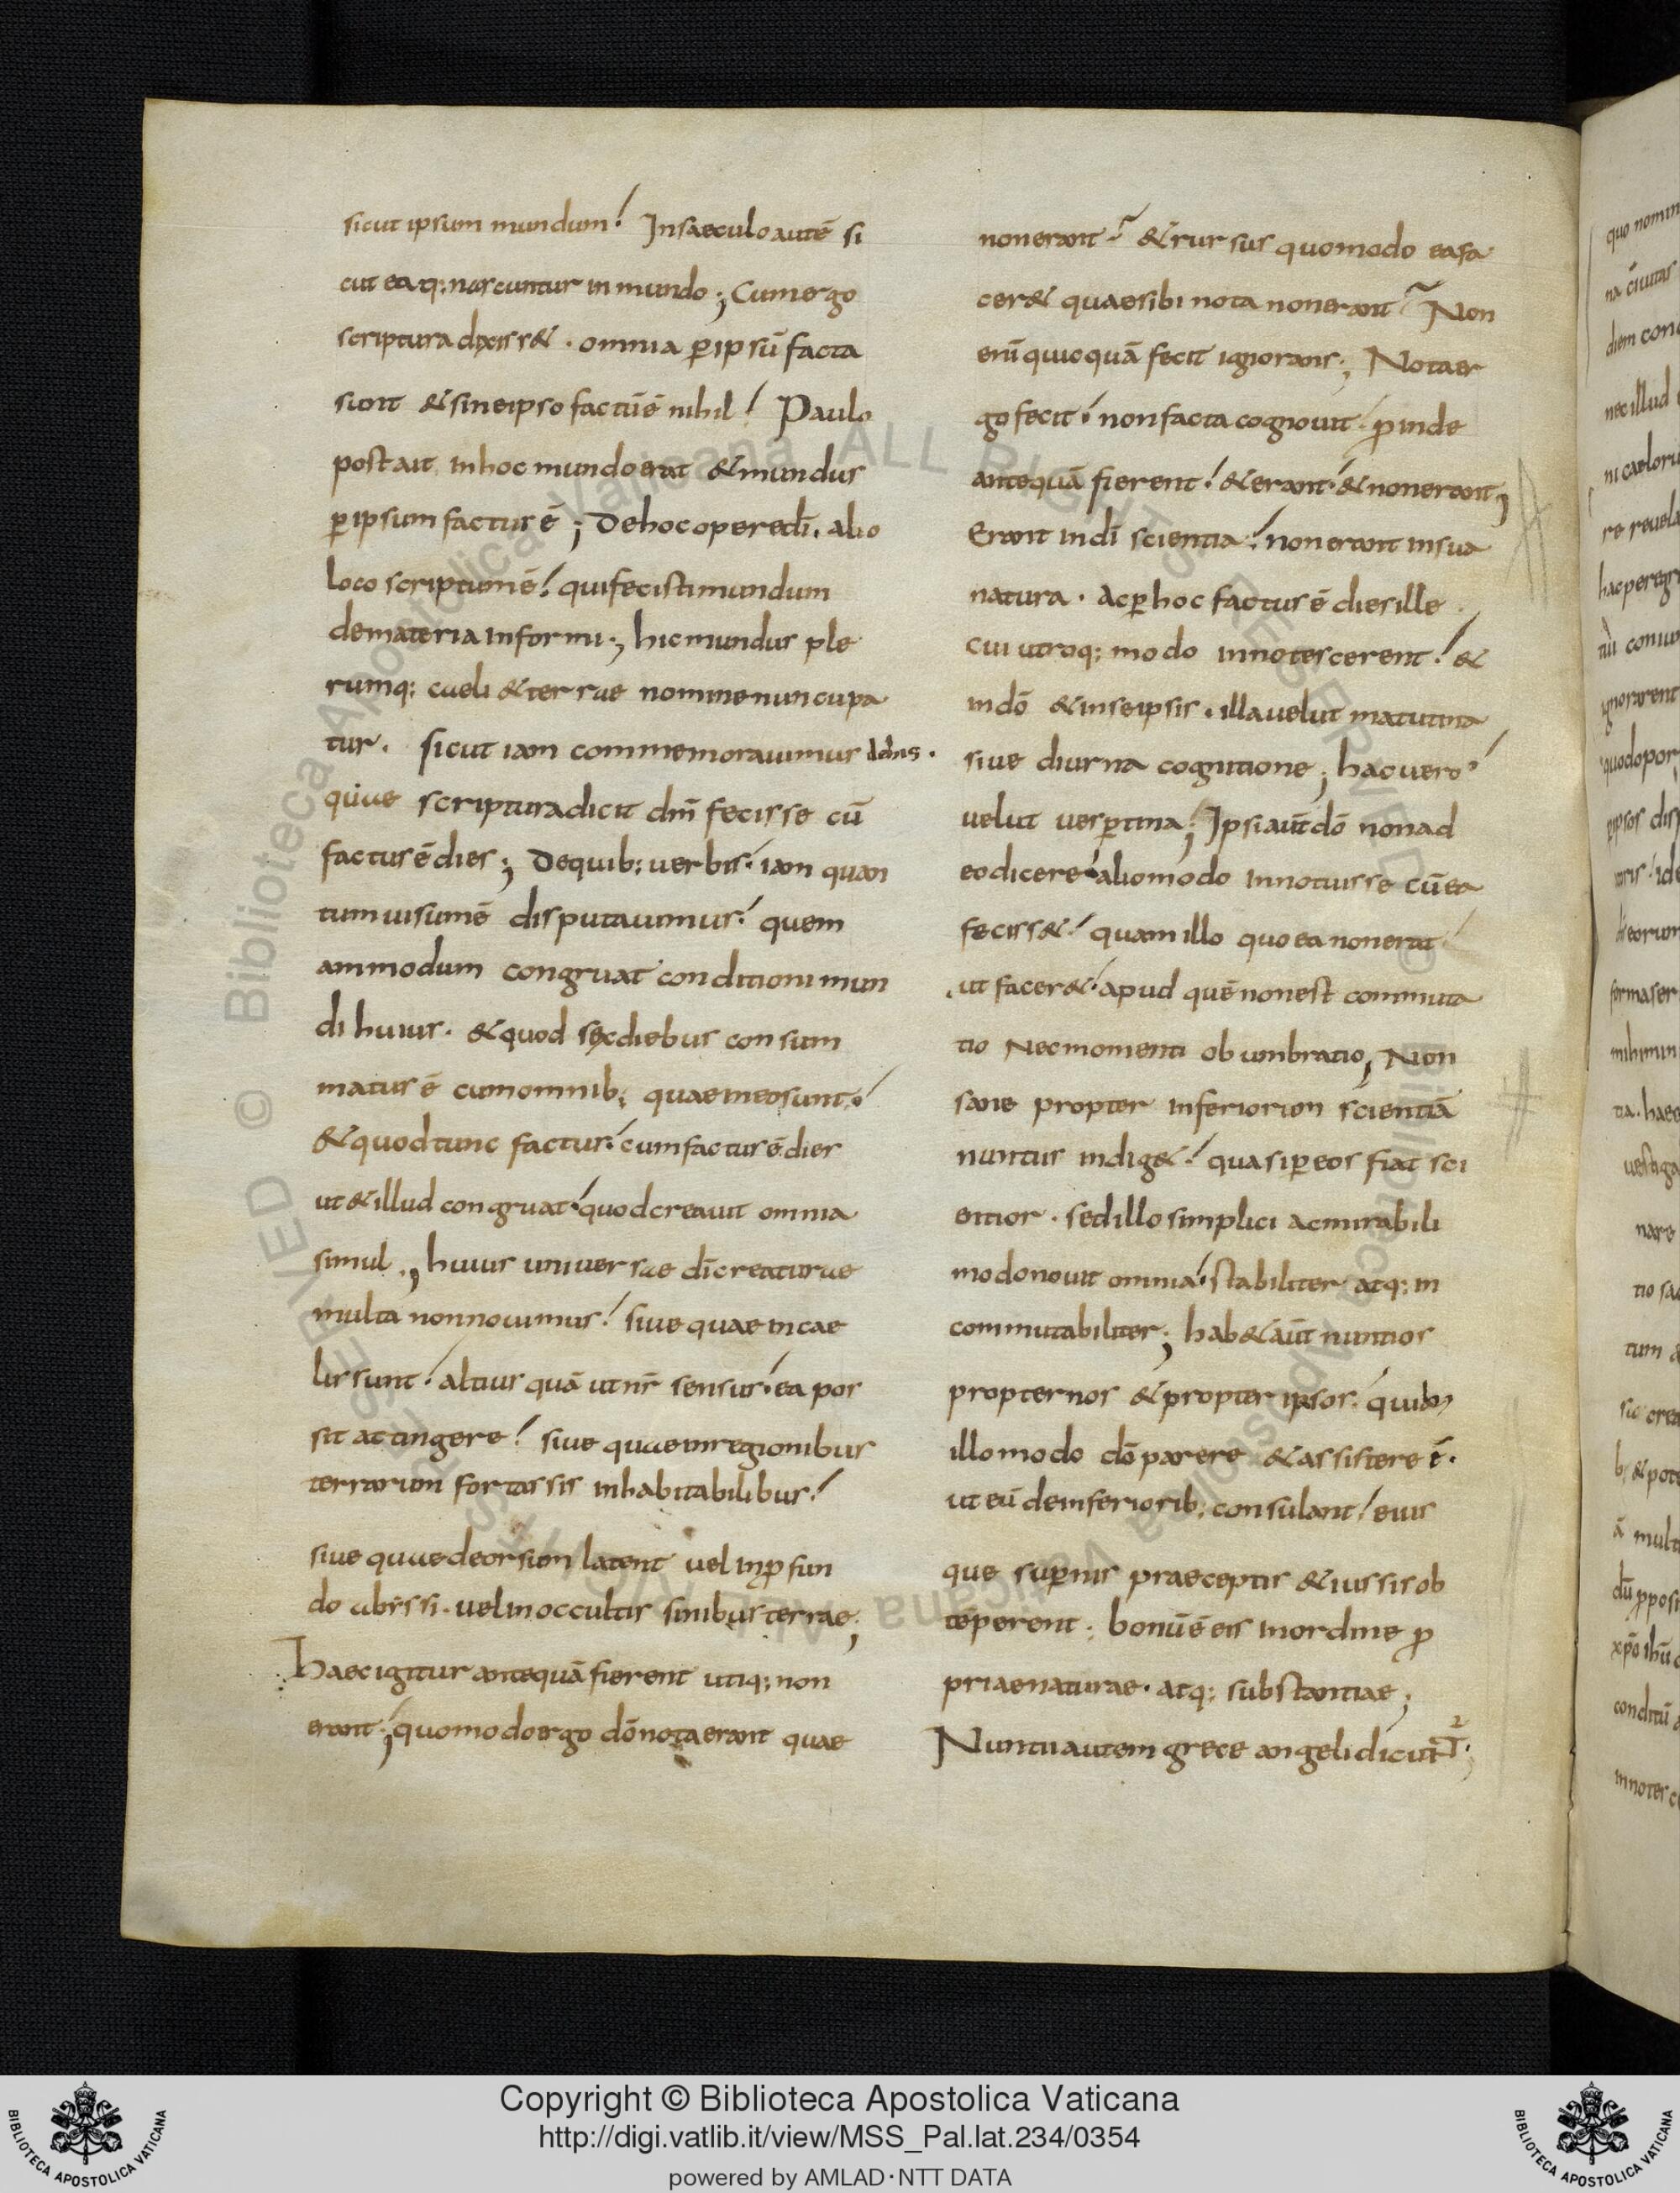 sicut ipsum mundum! Insaeculo autē si
cut ea q; nascuntur in mundo; Cum ergo
scriptura dixiss&. omnia ꝑ ipsū facta
sunt & sine ipso factū ē nihil! Paulo
post ait. in hoc mundo erat & mundus
ꝑ ipsum factus ē; De hoc opere dī. alio
loco scriptum ē! qui fecisti mundum
de materia informi; hic mundus ple
rumq; caeli & terrae nomine nuncupa
tur. sicut iam commemorauimus
quae scriptura dicit dm̄ fecisse cū
factus ē dies; De quib; uerbis! iam quan
tum uisum ē disputauimus! quem
ammodum congruat conditioni mun
di huius. & quod sex diebus consum
matus ē cum omnib; quae in eo sunt!
& quod tunc factus! cum factus ē dies
ut & illud congruat! quod creauit omnia
simul; huius uniuersae dī creaturae
multa non nouimus! siue quae in cae
lis sunt! altius quā ut nr̄ sensus! ea pos
sit attingere! siue quae in regionibus
terrarum fortassis inhabitabilibus!
siue quae deorsum latent uel in ꝓfun
do abyssi. uel in occultis sinibus terrae;
Haec igitur antequā fierent utiq; non
erant; quomodo ergo dō nota erant quae
non erant? & rursus quomodo ea fa
cer& quae sibi nota non erant? Non
enī quicquā fecit ignorans; Nota er
go fecit! non facta cognouit. ꝓinde
antequā fierent! & erant! & non erant;
Erant in dī scientia! non erant in sua
natura. Ac ꝑ hoc factus ē dies ille.
cui utroq; modo innotescerent! &
in dō & in se ipsis. illa uelut matutina
siue diurna cognitione; hac uero!
uelut uesꝑtina; Ipsi aūt dō non ad
eo dicere! alio modo innotuisse cū ea
feciss&! quam illo quo ea nouerat
ut facer&! apud quē non est commuta
tio nec momenti obumbratio; Non
sane propter inferiorum scientiā
nuntiis indig&! quasi ꝑ eos fiat sci
entior. sed illo simplici ac mirabili
modo nouit omnia! stabiliter atq; in
commutabiliter; hab& aūt nuntios
propter nos & propter ipsos! quia
illo modo dō parere & assistere ē.
ut eū de inferiorib; consulant! eius
que suꝑnis praeceptis & iussis ob
tēperent; bonū ē eis in ordine ꝓ
priae naturae. atq; substantiae;
Nuntii autem grece angeli dicūt
Copyright © Biblioteca Apostolica Vaticana
http://digi.vatlib.it/view/MSS_Pal.lat.234/0354
powered by AMLAD·NTT DATA
BIBLIOTECA APOSTOLICA VATICANA
BIBLIOTECA APOSTOLICA VATICANA